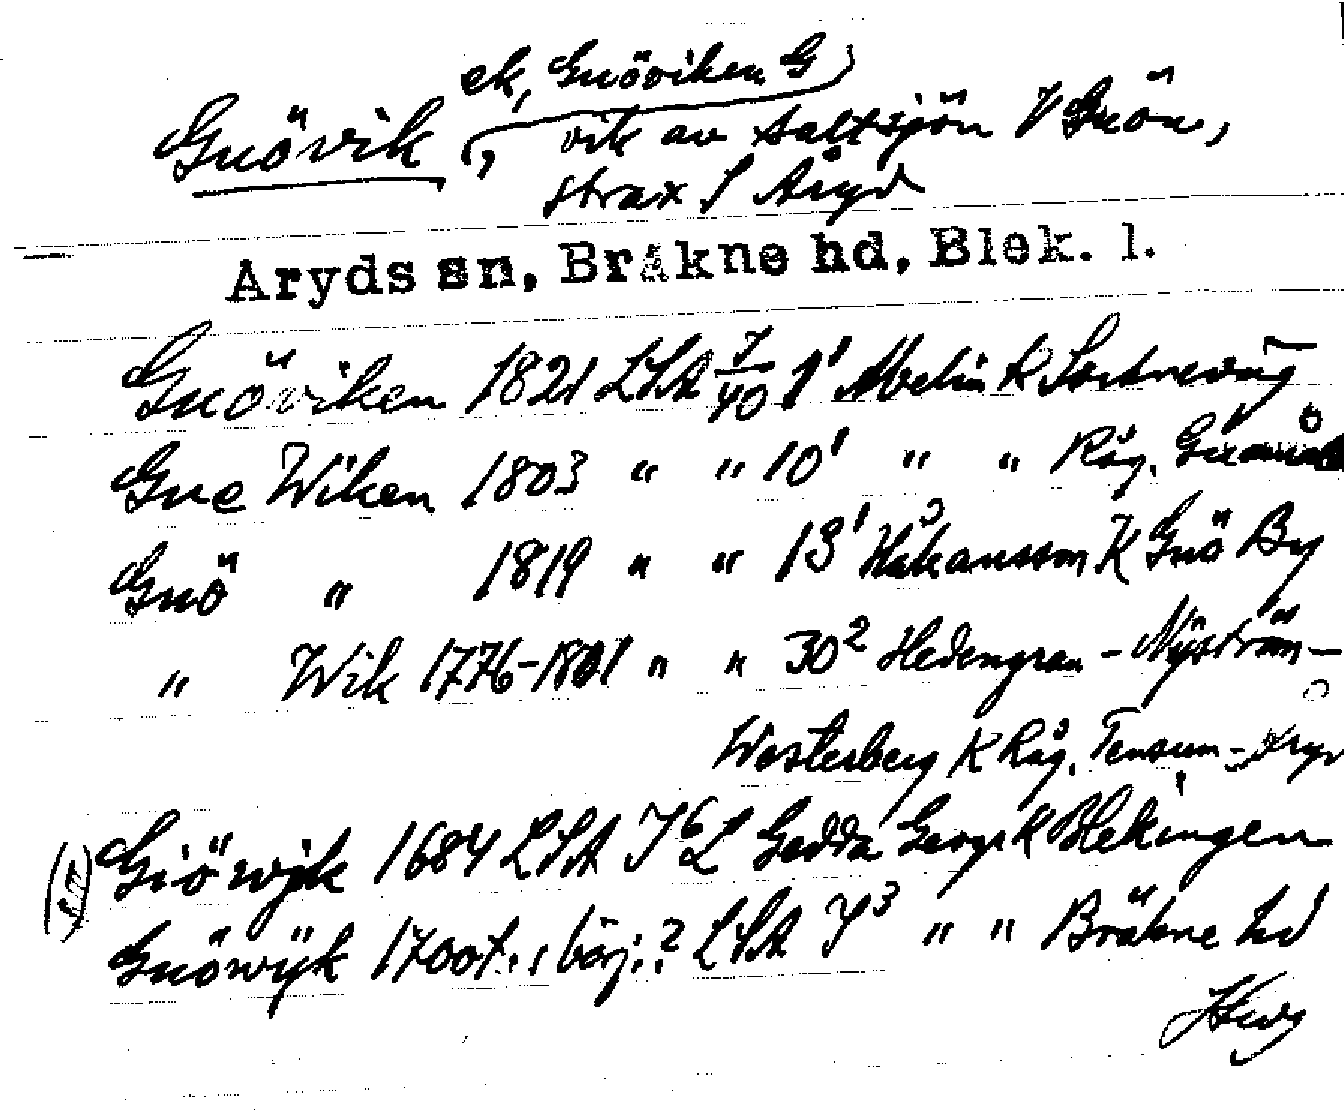 ek, Gnöviken G
Gnövik (, vik av Saltsjön V Gnön,
strax S Åryd
Åryds sn, Bräkne hd, Blek. l.
Gnöviken 1821 LSA I/40 1' Melin K Sternöväng
Gne Wiken 1803 " " 10' " " Råg.
Gnö " 1819 " " 13' Håkansson K Gnö By
" Wik 1776-1801 " " 30² Hedengran - Nyström -
Westerberg K Råg. Tensum - Åryd
Giöwijk 1684 LSA I⁶L Gedda Geogr K Blekingen
Gnöwijk 1700t., börj.? LSA I³ " " Bräkne hd